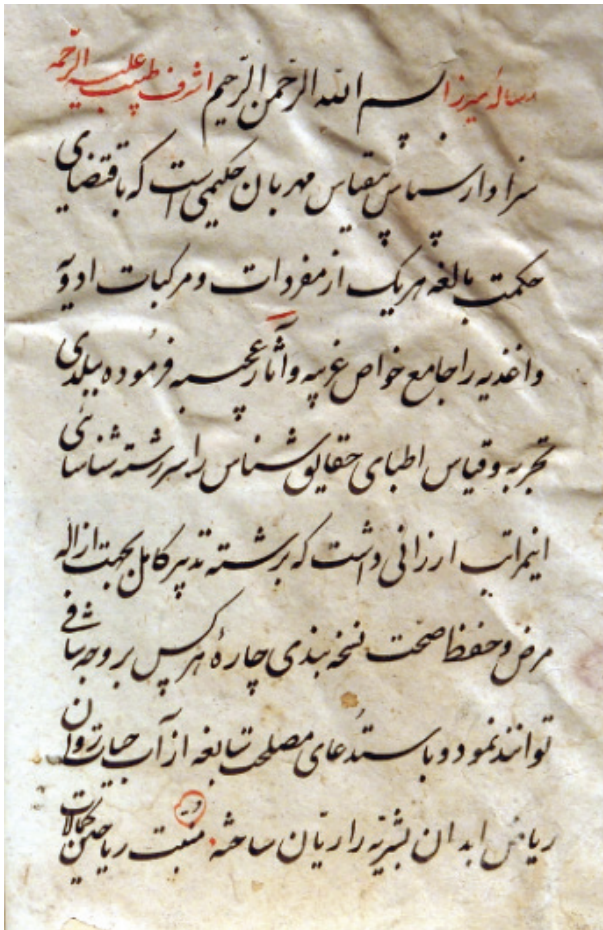 رسالهٔ میرزا بسم الله الرّحمن الرّحیم اشرف طبیب علیه الرّحمه
سزاوار سپاس بیقیاس مهربان حکیمی است که باقتضای
حکمت بالغه هریک از مفردات و مرکبات ادویه
و اغذیه را جامع خواص غریبه و آثار عجیبه فرموده ببلدی
تجربه و قیاس اطبای حقایق شناس را سررشته شناسائی
اینمراتب ارزانی داشت که برشته تدبیر کامل بجهت ازاله
مرض و حفظ صحّت نسخه بندی چارهٔ هر کس بر وجه شافی
توانند نمود و باستدعای مصلحت سابغه از آب حیات روان
ریاض ابدان بشریّه را ریّان ساخته منبت ریاحین کمالات